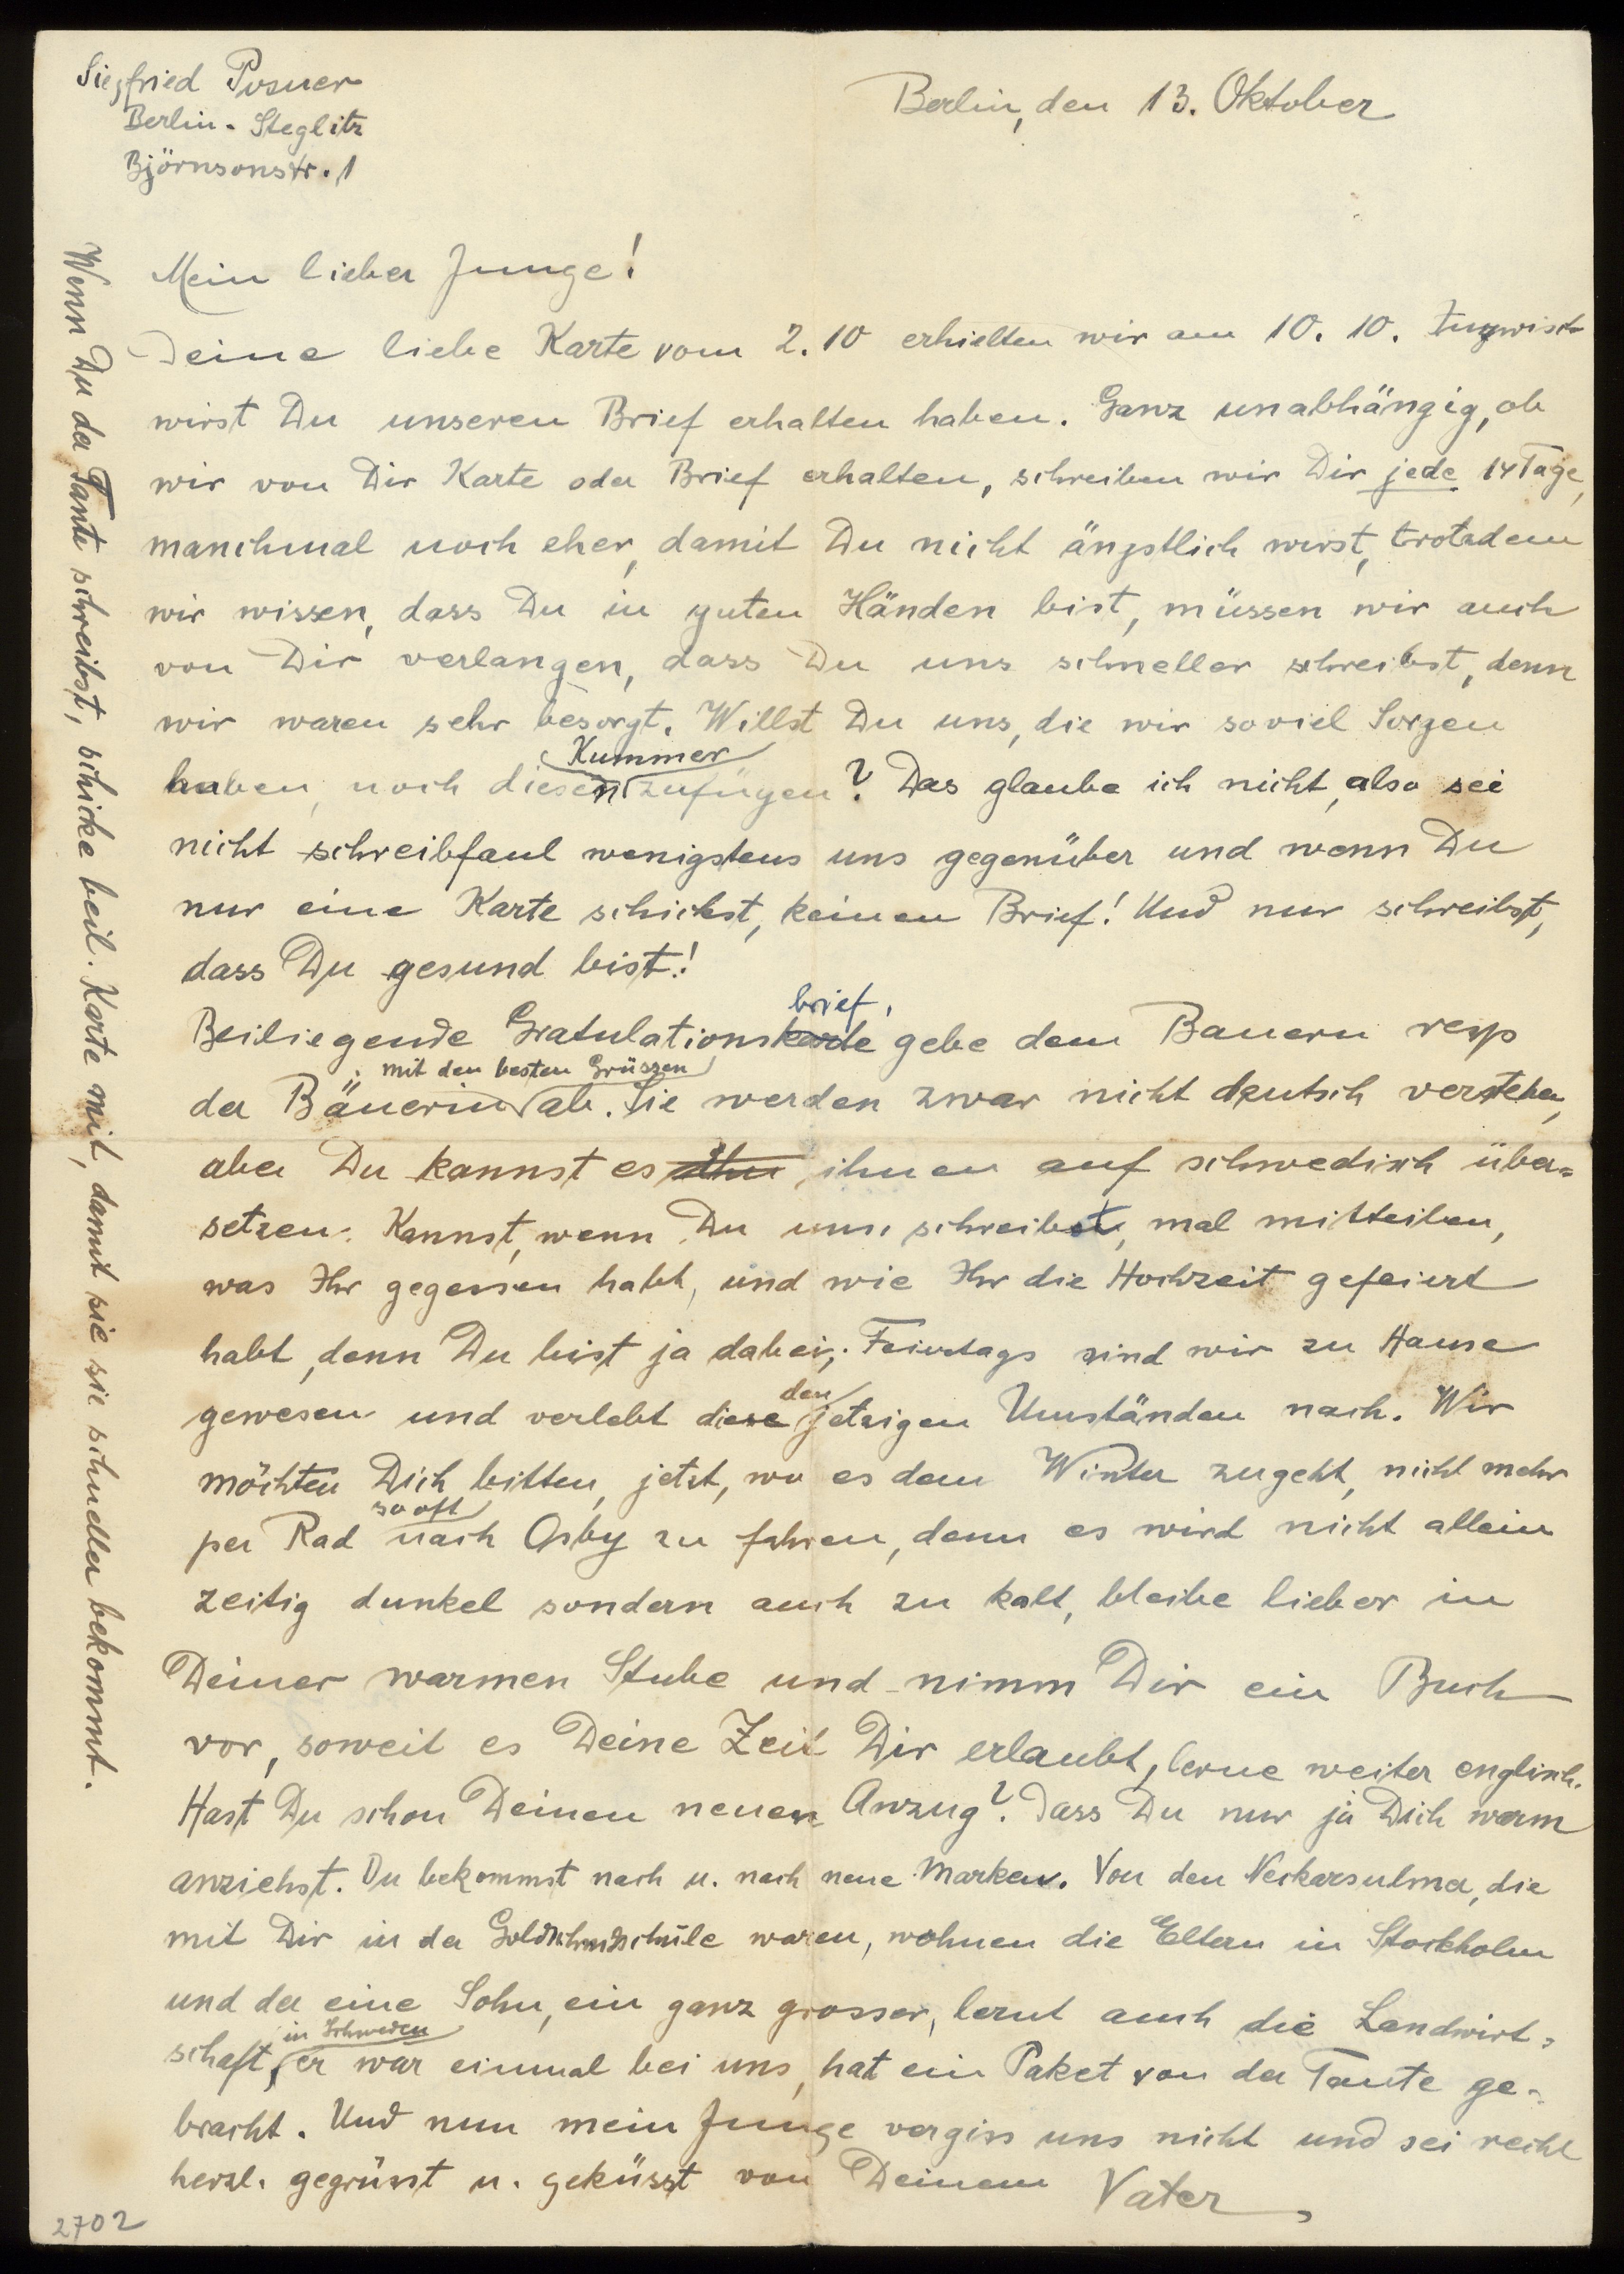 Siegfried Posner
Berlin-Steglitz
Björnsonstr. 1
Berlin, den 13. Oktober
Mein lieber Junge!
Deine liebe Karte vom 2.10 erhielten wir am 10. 10. Inzwisch
wirst Du unseren Brief erhalten haben. Ganz unabhängig, ob
wir von Dir Karte oder Brief erhalten, schreiben wir Dir jede 14 Tage,
manchmal noch eher, damit Du nicht ängstlich wirst, trotzdem
wir wissen, dass Du in guten Händen bist, müssen wir auch
von Dir verlangen, dass Du uns schneller schreibst, denn
wir waren sehr besorgt. Willst Du uns, die wir soviel Sorgen
haben, noch diesen Kummer zufügen? Das glaube ich nicht, also sei
nicht schreibfaul wenigstens uns gegenüber und wenn Du
nur eine Karte schickst, keinen Brief! Und nur schreibst,
dass Du gesund bist!
Beiliegende Gratulationskarte brief, gebe dem Bauern resp
der Bäuerin mit den besten Grüssen ab. Sie werden zwar nicht deutsch verstehen,
aber Du kannst es ihn ihnen auf schwedisch über=
setzen. Kannst, wenn Du uns schreibst, mal mitteilen,
was Ihr gegessen habt, und wie Ihr die Hochzeit gefeiert
habt, denn Du bist ja dabei. Feiertags sind wir zu Hause
gewesen und verlebt diese den jetzigen Umständen nach. Wir
möchten Dich bitten, jetzt, wo es dem Winter zugeht, nicht mehr
per Rad so oft nach Osby zu fahren, denn es wird nicht allein
zeitig dunkel sondern auch zu kalt, bleibe lieber in
Deiner warmen Stube und nimm Dir ein Buch
vor, soweit es Deine Zeit Dir erlaubt, lerne weiter englisch.
Hast Du schon Deinen neuen Anzug? Dass Du nur ja Dich warm
anziehst. Du bekommst nach u. nach neue Marken. Von den Neckarsulmer, die
mit Dir in der Goldschmidschule waren, wohnen die Eltern in Stockholm
und der eine Sohn, ein ganz grosser, lernt auch die Landwirt=
schaft, in Schweden er war einmal bei uns, hat ein Paket von der Tante ge=
bracht. Und nun mein Junge vergiss uns nicht und sei recht
herzl. gegrüsst u. geküsst von Deinem Vater
Wenn Du der Tante schreibst, schicke beil. Karte mit, damit sie sie schneller bekommt.
2702